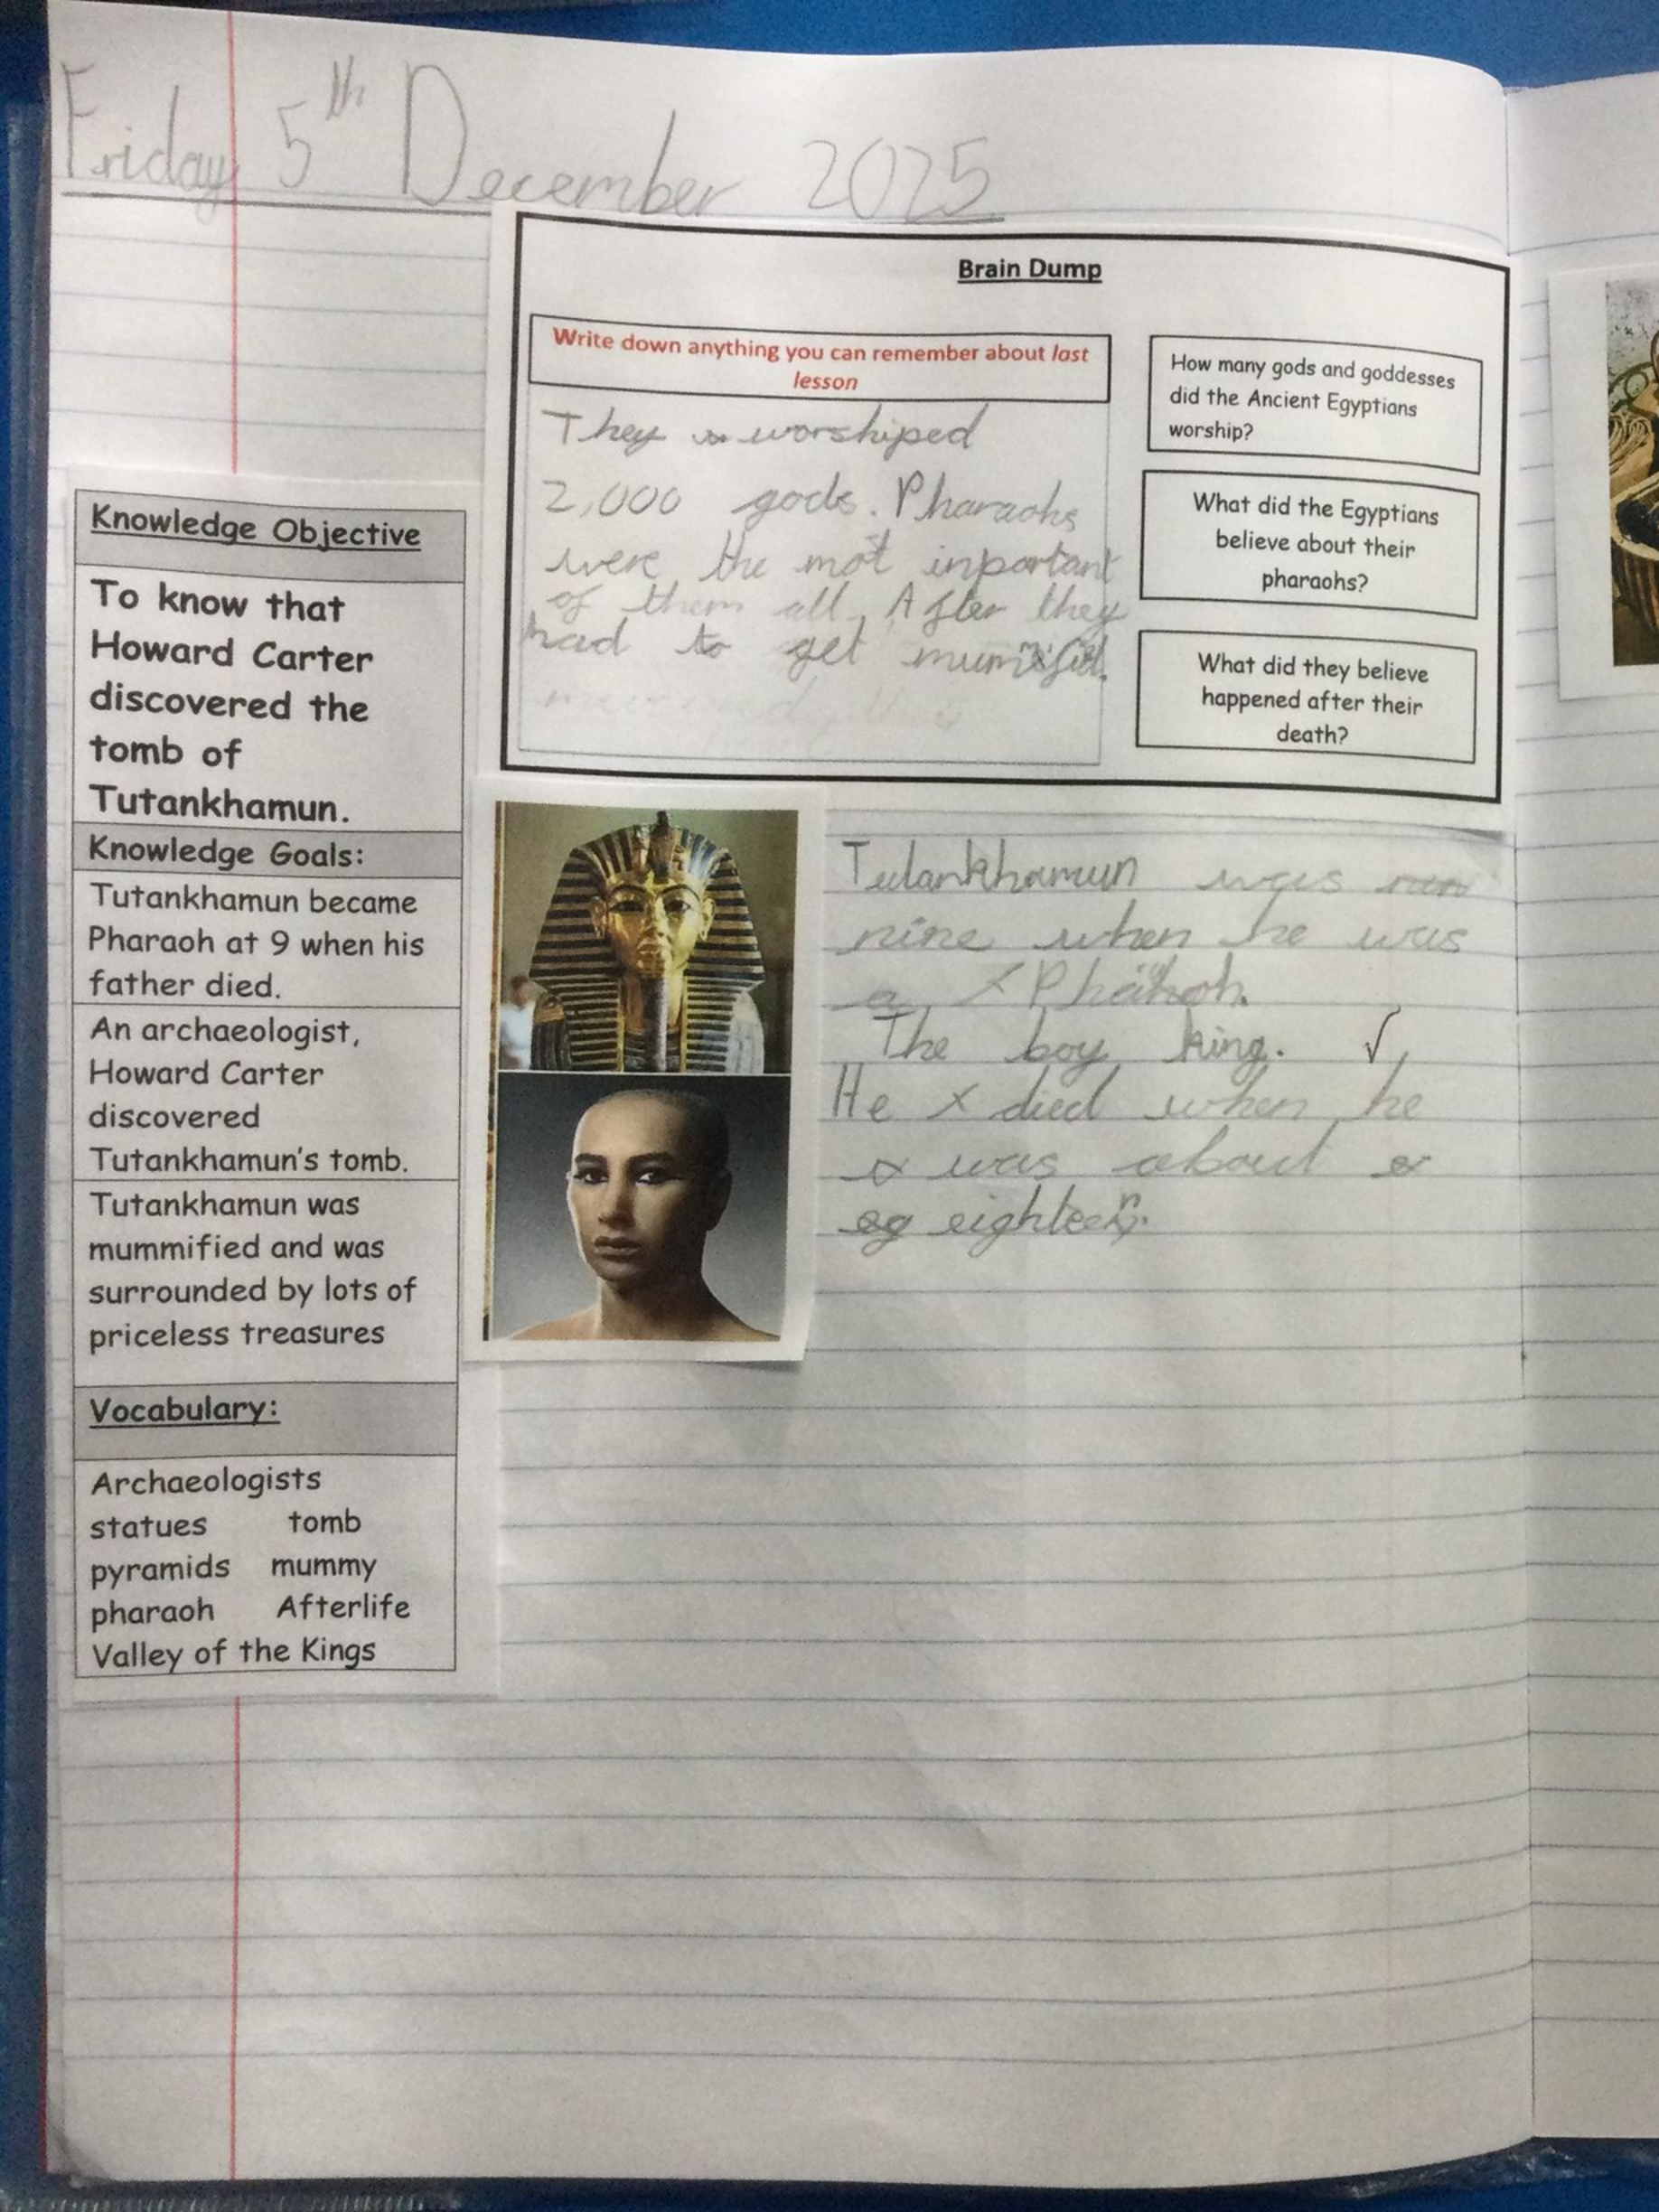 Friday 5th December 2025
Brain Dump
Write down anything you can remember about last
lesson
They worshiped
2,000 gods. Pharaohs
were the mot inportant
of them all. After they
had to get
How many gods and goddesses
did the Ancient Egyptians
worship?
What did the Egyptians
believe about their
pharaohs?
What did they believe
happened after their
death?
Knowledge Objective
To know that
Howard Carter
discovered the
tomb of
Tutankhamun.
Knowledge Goals:
Tutankhamun became
Pharaoh at 9 when his
father died.
An archaeologist,
Howard Carter
discovered
Tutankhamun's tomb.
Tutankhamun was
mummified and was
surrounded by lots of
priceless treasures
Vocabulary:
Archaeologists
statues tomb
pyramids mummy
pharaoh Afterlife
Valley of the Kings
Tutankhamun was
nine when he was
a
The boy king.
He died when he
was about
eighteen.